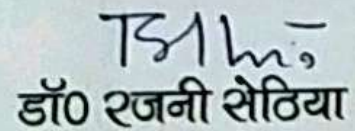 डॉ0 रजनी सेठिया